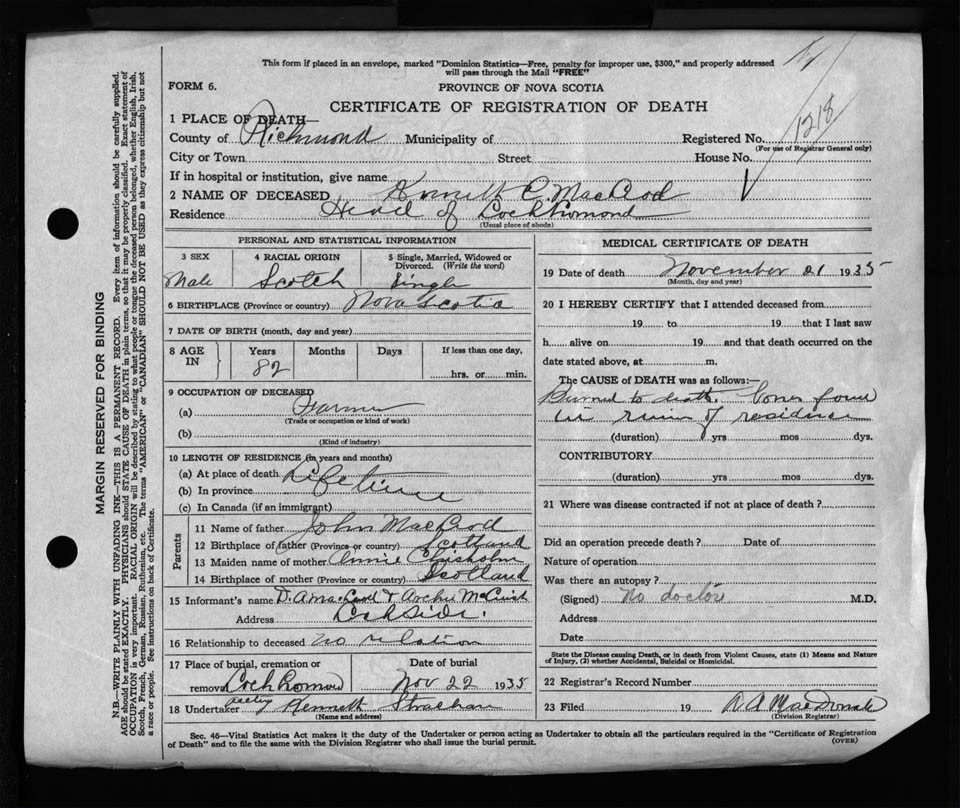 This form if placed in an envelope, marked "Dominion Statistics—Free, penalty for improper use, $300," and properly addressed
will pass through the Mail "FREE"
FORM 6.
PROVINCE OF NOVA SCOTIA
CERTIFICATE OF REGISTRATION OF DEATH
1218
1 PLACE OF DEATH—
County of Richmond Municipality of Registered No.
(For use of Registrar General only)
City or Town Street House No.
If in hospital or institution, give name
2 NAME OF DECEASED Kenneth C. MacLeod
Residence Head of Loch Lomond
(Usual place of abode)
PERSONAL AND STATISTICAL INFORMATION
3 SEX 4 RACIAL ORIGIN 5 Single, Married, Widowed or
Divorced. (Write the word)
Male Scotch Single
6 BIRTHPLACE (Province or country) Nova Scotia
7 DATE OF BIRTH (month, day and year)
8 AGE IN Years Months Days If less than one day,
82 hrs. or min.
9 OCCUPATION OF DECEASED
(a) Farmer
(Trade or occupation or kind of work)
(b)
(Kind of industry)
10 LENGTH OF RESIDENCE (in years and months)
(a) At place of death Lifetime
(b) In province
(c) In Canada (if an immigrant)
Parents
11 Name of father John MacLeod
12 Birthplace of father (Province or country) Scotland
13 Maiden name of mother Annie Chisholm
14 Birthplace of mother (Province or country) Scotland
15 Informant's name D. A. MacLeod & Archie McCuish
Address Lochside.
16 Relationship to deceased no relation
17 Place of burial, cremation or Date of burial
removal Loch Lomond Nov 22 1935
18 Undertaker Kenneth Strachan
(Name and address)
MEDICAL CERTIFICATE OF DEATH
19 Date of death November 21 1935
(Month, day and year)
20 I HEREBY CERTIFY that I attended deceased from
19 to 19 that I last saw
h alive on 19 and that death occurred on the
date stated above, at m.
The CAUSE OF DEATH was as follows:—
Burned to death. Bones found
in ruins of residence
(duration) yrs mos dys.
CONTRIBUTORY
(duration) yrs mos dys.
21 Where was disease contracted if not at place of death?
Did an operation precede death? Date of
Nature of operation
Was there an autopsy?
(Signed) No doctor M.D.
Address
Date
State the Disease causing Death, or in death from Violent Causes, state (1) Means and Nature
of Injury, (2) whether Accidental, Suicidal or Homicidal.
22 Registrar's Record Number
23 Filed 19 D A MacDonald
(Division Registrar)
Sec. 46—Vital Statistics Act makes it the duty of the Undertaker or person acting as Undertaker to obtain all the particulars required in the "Certificate of Registration
of Death" and to file the same with the Division Registrar who shall issue the burial permit. (OVER)
MARGIN RESERVED FOR BINDING
N.B.—WRITE PLAINLY WITH UNFADING INK—THIS IS A PERMANENT RECORD. Every item of information should be carefully supplied.
AGE should be stated EXACTLY. PHYSICIANS should STATE CAUSE OF DEATH in plain terms, so that it may be properly classified. Exact statement of
OCCUPATION is very important. RACIAL ORIGIN will be described by stating to what people or tongue the deceased person belonged, whether English, Irish,
Scotch, French, German, Russian, Ruthenian, etc. The terms "AMERICAN" or "CANADIAN" SHOULD NOT BE USED as they express citizenship but not
a race or people. See instructions on back of Certificate.